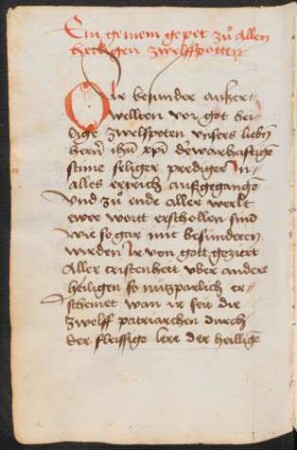 Ein gemein gepet zuͦ allen
heiligen zwelffpotten
O Ir besunder außer
wellten vor got hei
lige zwelfpoten unsers liebn̄
herrn̄ ihū xp̄i der warhafftigen
stime seliger prediger In
alles ertrich außgegangē
Und zuͦ ende aller werlt
ewre wortt erschollen sind
wie so gar mit besunderen
wirden ir von gott geziert
aller cristenheit vber andere
heiligen so nutzparlich er
scheinet wan ir seit die
zwelff patriarchen durch
der fleissige lere der heilligē